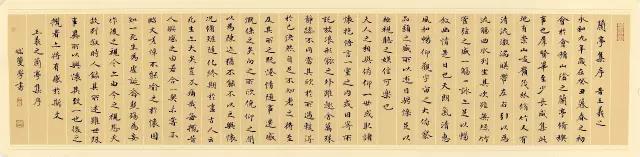 蘭亭集序 晉王羲之
永和九年歲在癸丑暮春之初
會於會稽山陰之蘭亭修禊
事也群賢畢至少長咸集此
地有崇山峻嶺茂林修竹又有
清流激湍映帶左右引以為
流觴曲水列坐其次雖無絲竹
管絃之盛一觴一詠亦足以暢
敘幽情是日也天朗氣清惠
風和暢仰觀宇宙之大俯察
品類之盛所以遊目騁懷足以
極視聽之娛信可樂也
夫人之相與俯仰一世或取諸
懷抱悟言一室之內或因寄所
託放浪形骸之外雖趣舍萬殊
靜躁不同當其欣於所遇暫得
於己快然自足不知老之將至
及其所之既倦情隨事遷感
慨係之矣向之所欣俛仰之間
以為陳迹猶不能不以之興懷
況修短隨化終期於盡古人云
死生亦大矣豈不痛哉每攬昔
人興感之由若合一契未嘗不
臨文嗟悼不能喻之於懷固
知一死生為虛誕齊彭殤為妄
作後之視今亦由今之視昔悲夫
故列敘時人錄其所述雖世殊
事異所以興懷其致一也後之
覽者亦將有感於斯文
王羲之蘭亭集序
學書